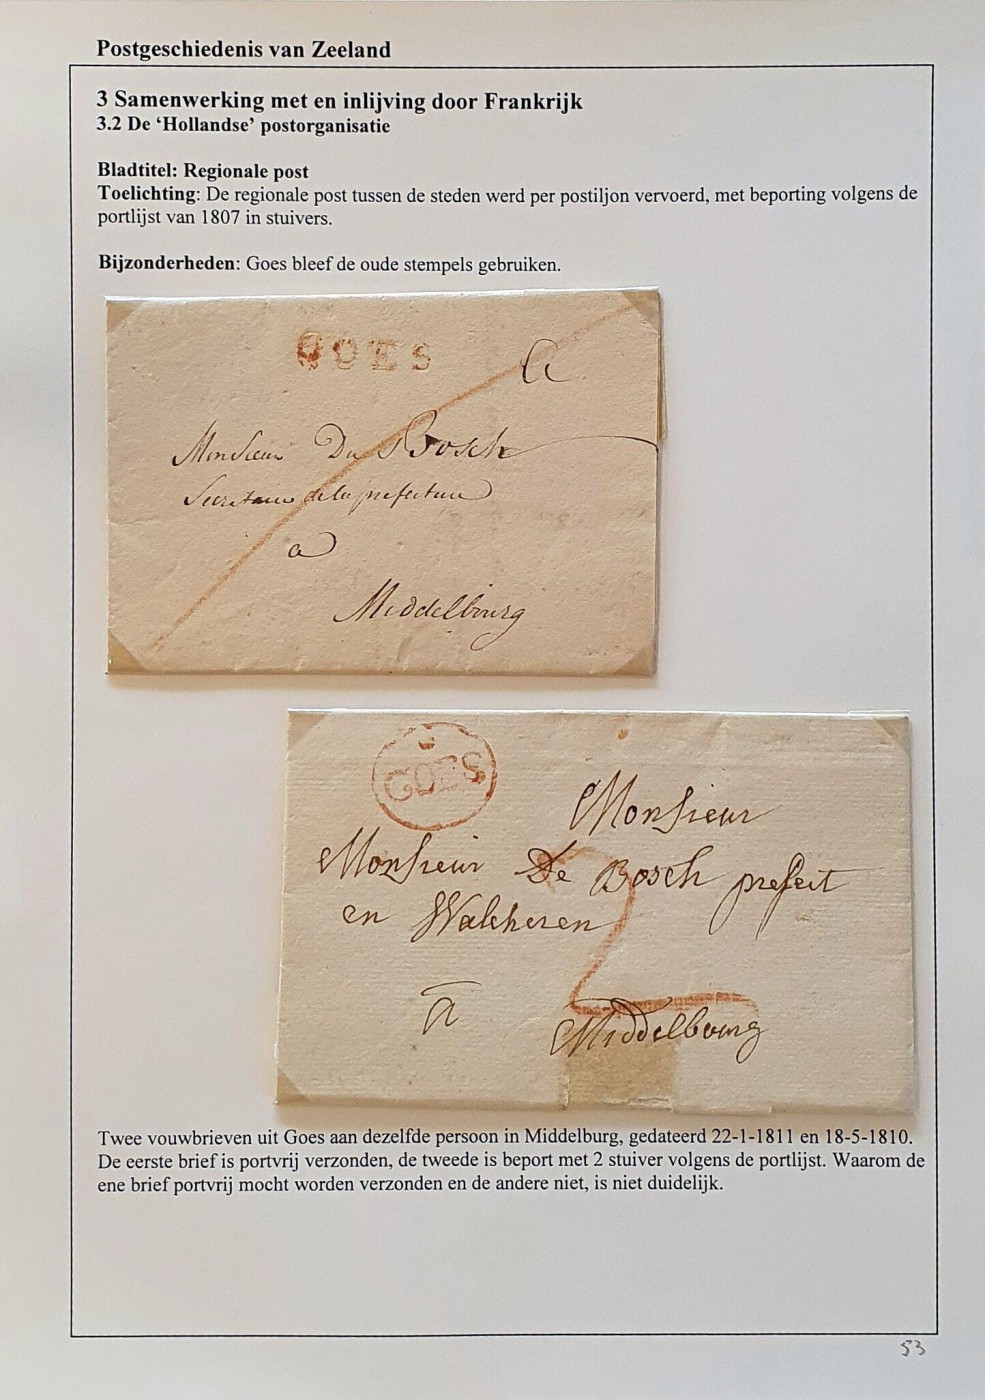 Postgeschiedenis van Zeeland
3 Samenwerking met en inlijving door Frankrijk
3.2 De ‘Hollandse’ postorganisatie
Bladtitel: Regionale post
Toelichting: De regionale post tussen de steden werd per postiljon vervoerd, met beporting volgens de
portlijst van 1807 in stuivers.
Bijzonderheden: Goes bleef de oude stempels gebruiken.
GOES
a
Monsieur Du Bosch
Secretaire de la prefecture
a
Middelbourg
GOES
Monsieur
Monsieur De Bosch prefeit
en Walcheren
2
a
Middelbourg
Twee vouwbrieven uit Goes aan dezelfde persoon in Middelburg, gedateerd 22-1-1811 en 18-5-1810.
De eerste brief is portvrij verzonden, de tweede is beport met 2 stuiver volgens de portlijst. Waarom de
ene brief portvrij mocht worden verzonden en de andere niet, is niet duidelijk.
53